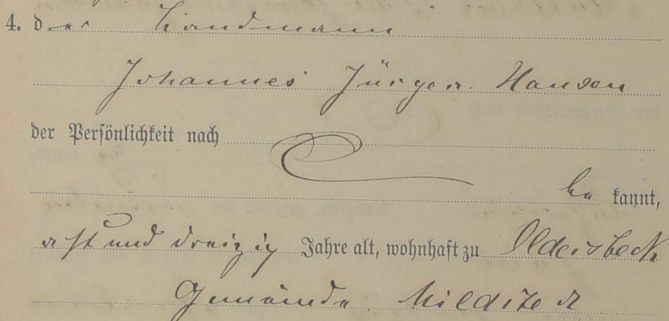 4. der Landmann
Johannes Jürgen Hansen
der Persönlichkeit nach
be kannt,
acht und dreizig Jahre alt, wohnhaft zu Oldersbeck
Gemeinde Mildstedt